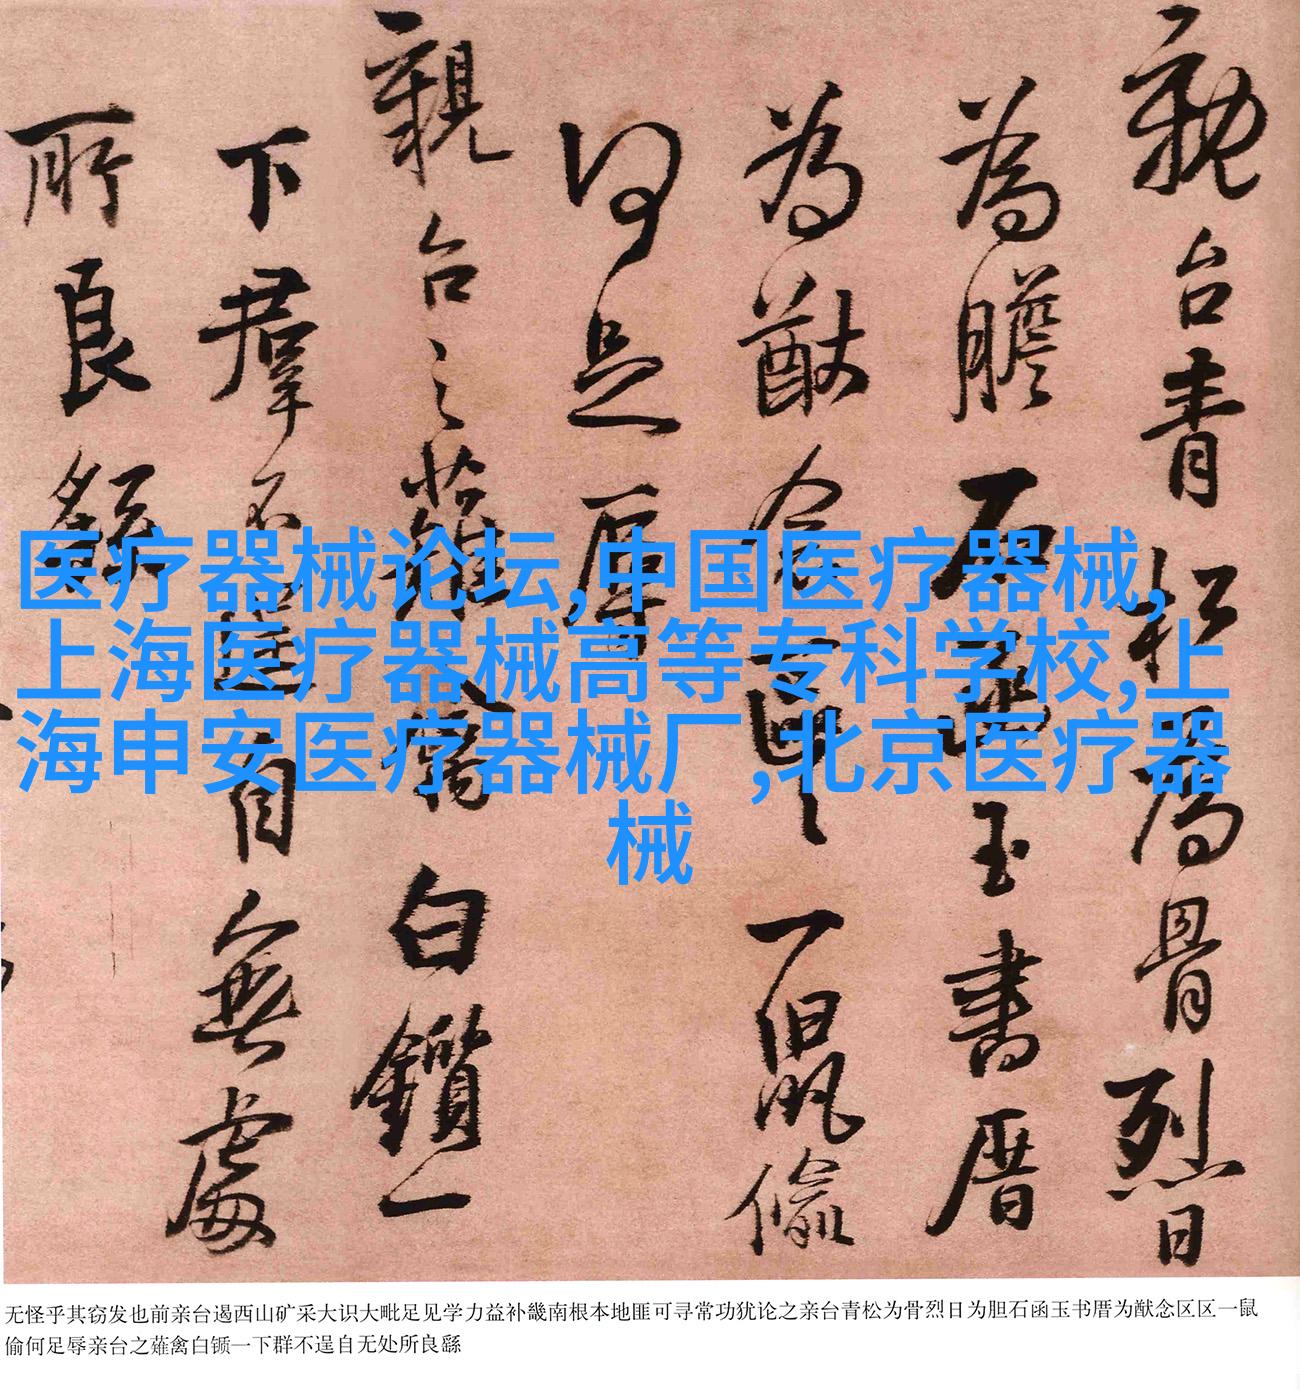 親台青松為骨烈日
為膽石函玉書厝
為猷念區區一鼠偷
何足辱
親台之薙禽白鑕一
下群不逞自無處
所良繇
医疗器械论坛,中国医疗器械,
上海医疗器械高等专科学校,上
海申安医疗器械厂,北京医疗器
械
无怪乎其窃发也前亲台遏西山矿采大识大毗足见学力益补畿南根本地匪可寻常功犹论之亲台青松为骨烈日为胆石函玉书厝为猷念区区一鼠
偷何足辱亲台之薙禽白锧一下群不逞自无处所良繇